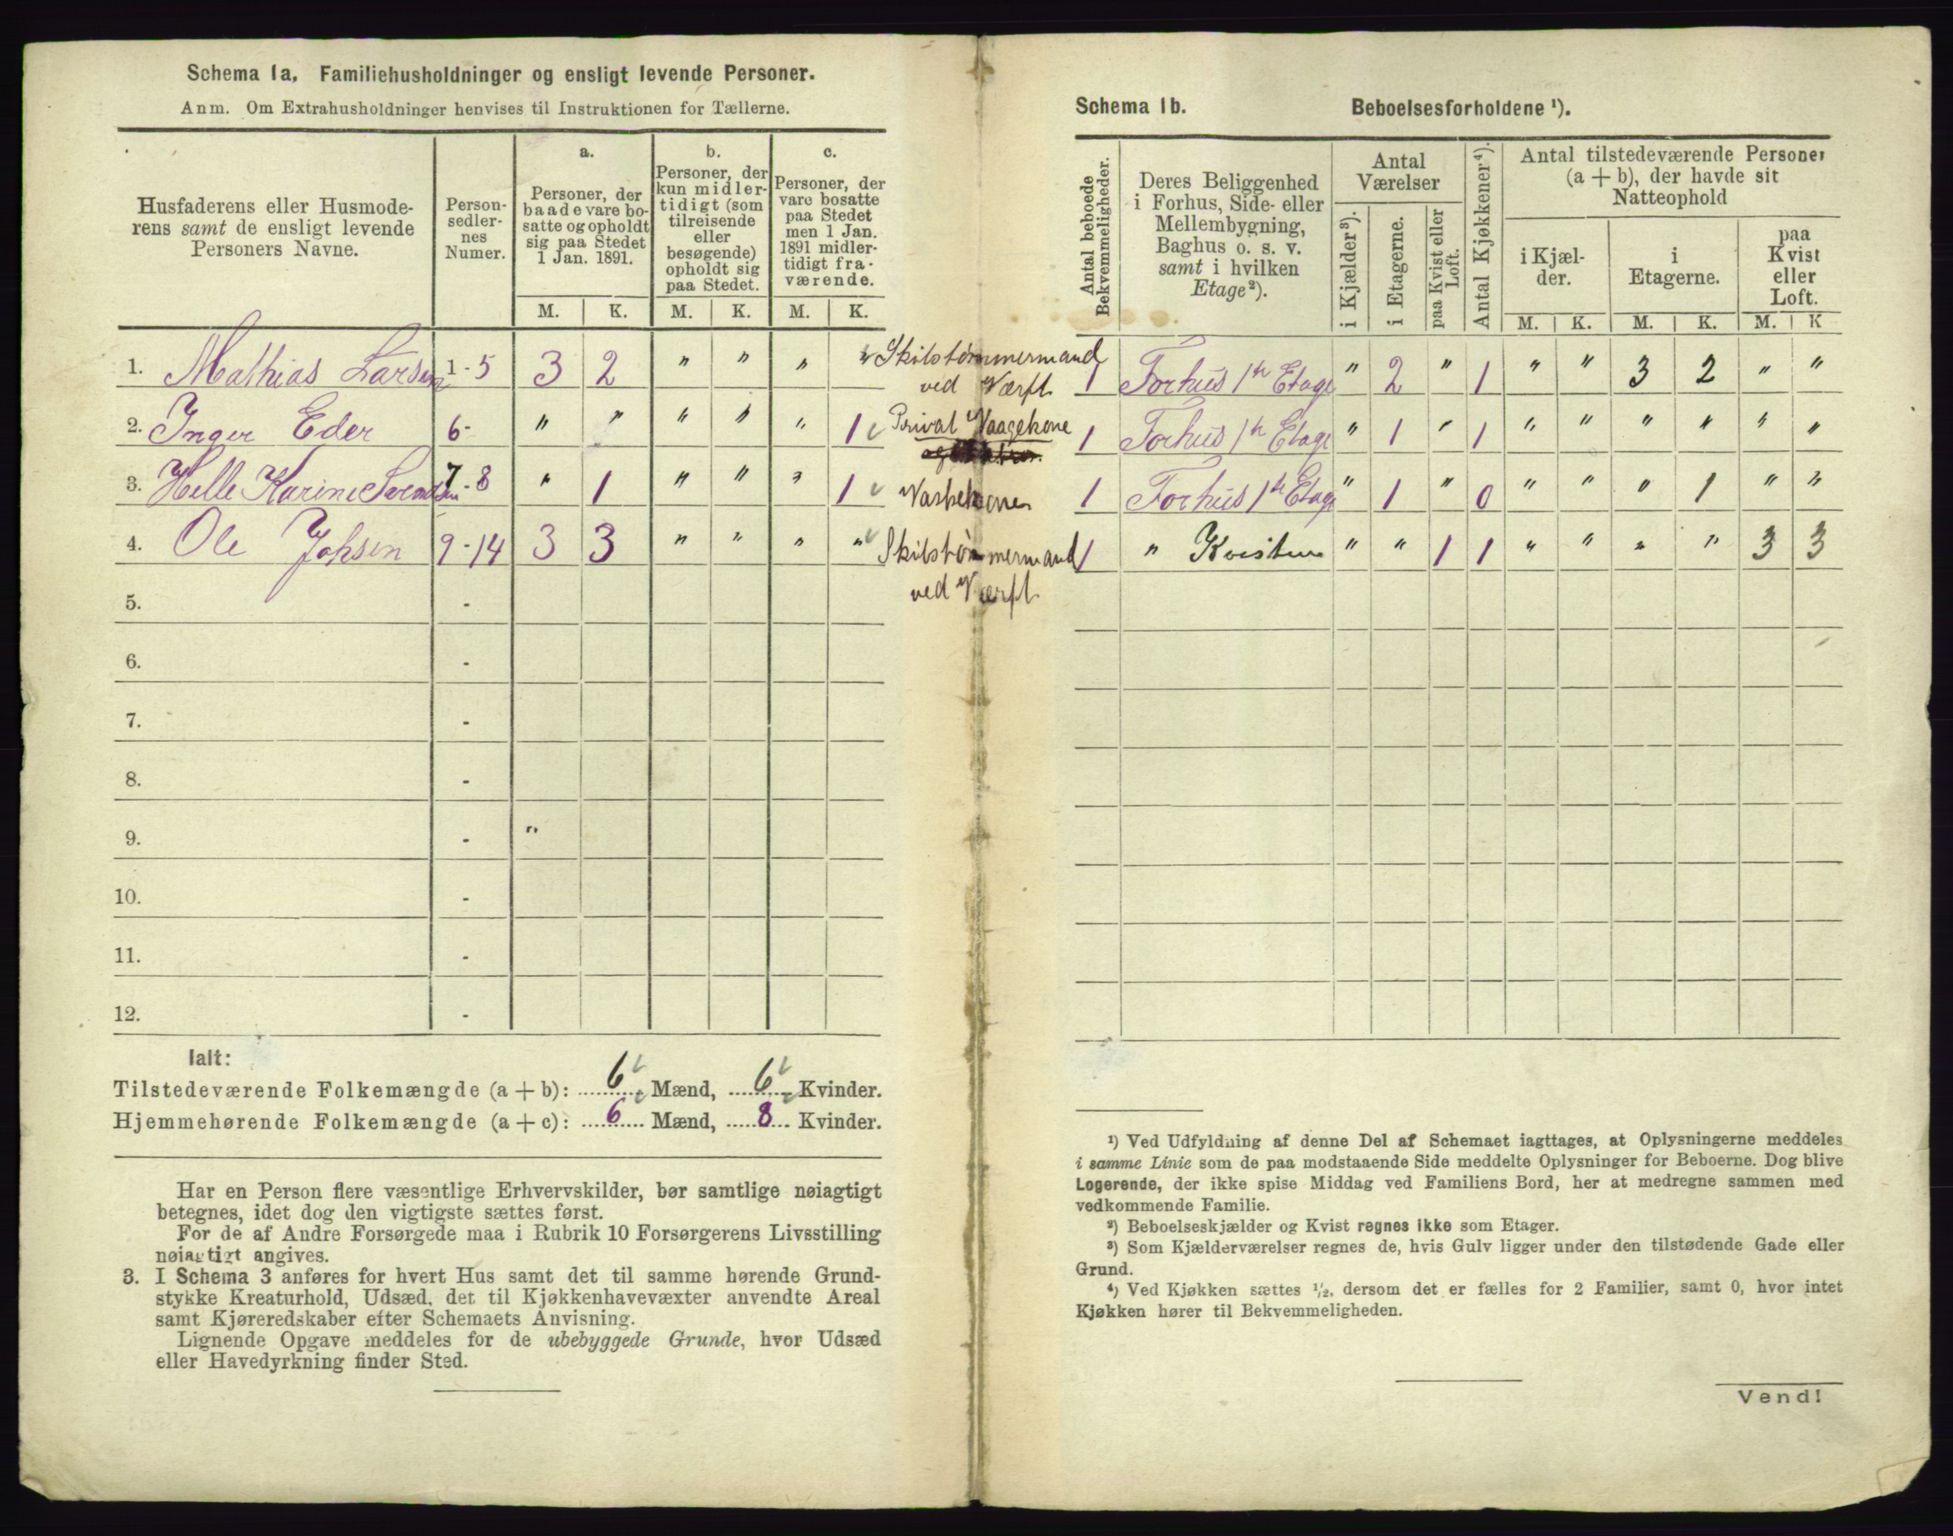 Schema 1a. Familiehusholdninger og ensligt levende Personer.
Anm. Om Extrahusholdninger henvises til Instruktionen for Tællerne.
Husfaderens eller Husmode-
rens samt de ensligt levende
Personers Navne.
Person-
sedler-
nes
Numer.
a.
Personer, der
baade vare bo-
satte og opholdt
sig paa Stedet
1 Jan. 1891.
b.
Personer, der
kun midler-
tidigt (som
tilreisende
eller
besøgende)
opholdt sig
paa Stedet.
c.
Personer, der
vare bosatte
paa Stedet
men 1 Jan.
1891 midler-
tidigt fra-
værende.
M. K. M. K. M. K.
1. Mathias Larsen 1-5 3 2 " " " " Skibstømmermand
ved Værft
2. Inger Eder 6- " " " " " 1 Privat Vaagekone
3. Helle Karine Svendsen 7-8 " 1 " " " 1 Vaskekone
4. Ole Johsen 9-14 3 3 " " " " Skibstømmermand
ved Værft
5. -
6. -
7. -
8. -
9. - "
10. -
11. -
12. -
Ialt:
Tilstedeværende Folkemængde (a + b): 6 Mænd, 6 Kvinder.
Hjemmehørende Folkemængde (a + c): 6 Mænd, 8 Kvinder.
Har en Person flere væsentlige Erhvervskilder, bør samtlige nøiagtigt
betegnes, idet dog den vigtigste sættes først.
For de af Andre Forsørgede maa i Rubrik 10 Forsørgerens Livsstilling
nøiagtigt angives.
3. I Schema 3 anføres for hvert Hus samt det til samme hørende Grund-
stykke Kreaturhold, Udsæd, det til Kjøkkenhavevæxter anvendte Areal
samt Kjøreredskaber efter Schemaets Anvisning.
Lignende Opgave meddeles for de ubebyggede Grunde, hvor Udsæd
eller Havedyrkning finder Sted.
Schema 1b. Beboelsesforholdene ¹).
Antal beboede
Bekvemmeligheder.
Deres Beliggenhed
i Forhus, Side- eller
Mellembygning,
Baghus o. s. v.
samt i hvilken
Etage²).
Antal
Værelser
i Kjælder³).
i Etagerne.
paa Kvist eller
Loft.
Antal Kjøkkener⁴).
Antal tilstedeværende Personer
(a + b), der havde sit
Natteophold
i Kjæl-
der.
i
Etagerne.
paa
Kvist
eller
Loft.
M. K. M. K. M. K
1 Forhus 1te Etage " 2 " 1 " " 3 2 " "
1 Forhus 1te Etage " 1 " 1 " " " " " "
1 Forhus 1te Etage " 1 " 0 " " " 1 " "
1 " Kvisten " " 1 1 " " " " 3 3
¹) Ved Udfyldning af denne Del af Schemaet iagttages, at Oplysningerne meddeles
i samme Linie som de paa modstaaende Side meddelte Oplysninger for Beboerne. Dog blive
Logerende, der ikke spise Middag ved Familiens Bord, her at medregne sammen med
vedkommende Familie.
²) Beboelseskjælder og Kvist regnes ikke som Etager.
³) Som Kjælderværelser regnes de, hvis Gulv ligger under den tilstødende Gade eller
Grund.
⁴) Ved Kjøkken sættes ½, dersom det er fælles for 2 Familier, samt 0, hvor intet
Kjøkken hører til Bekvemmeligheden.
Vend!